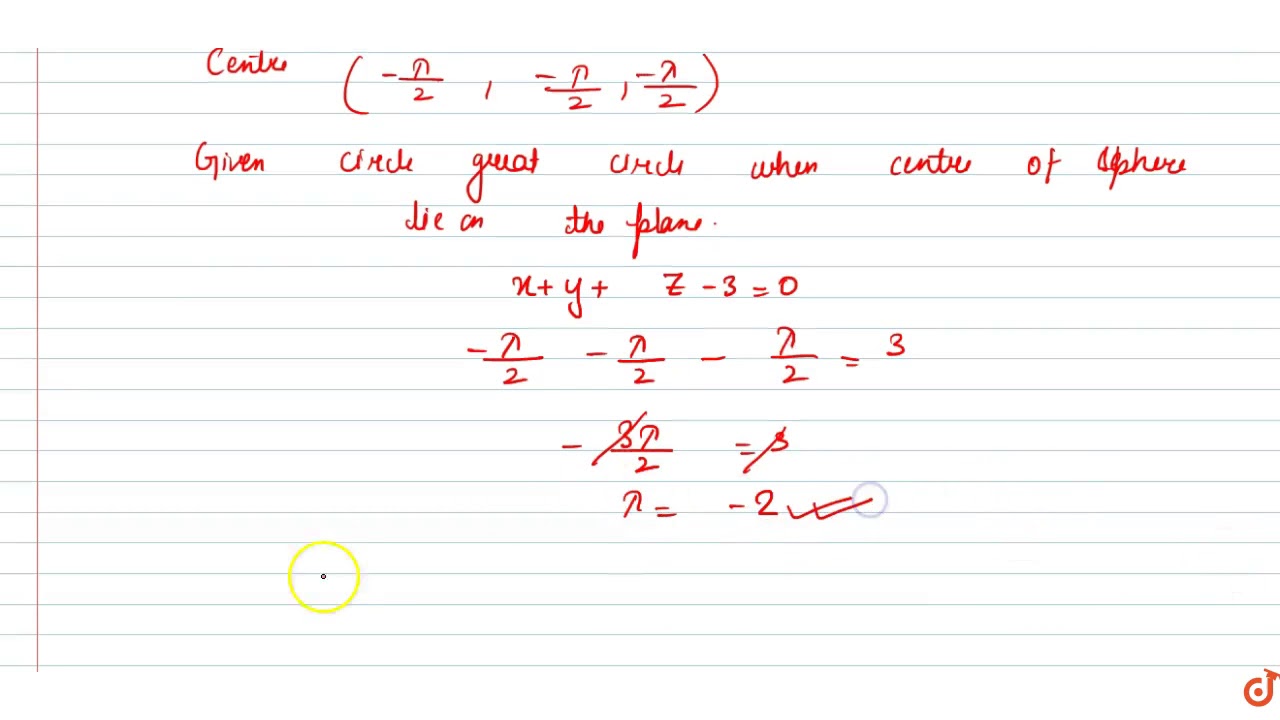 Centre (-λ/2, -λ/2, -λ/2)
Given circle great circle when centre of sphere
lie on the plane.
x + y + z - 3 = 0
-λ/2 - λ/2 - λ/2 = 3
- 3λ/2 = 3
λ = -2